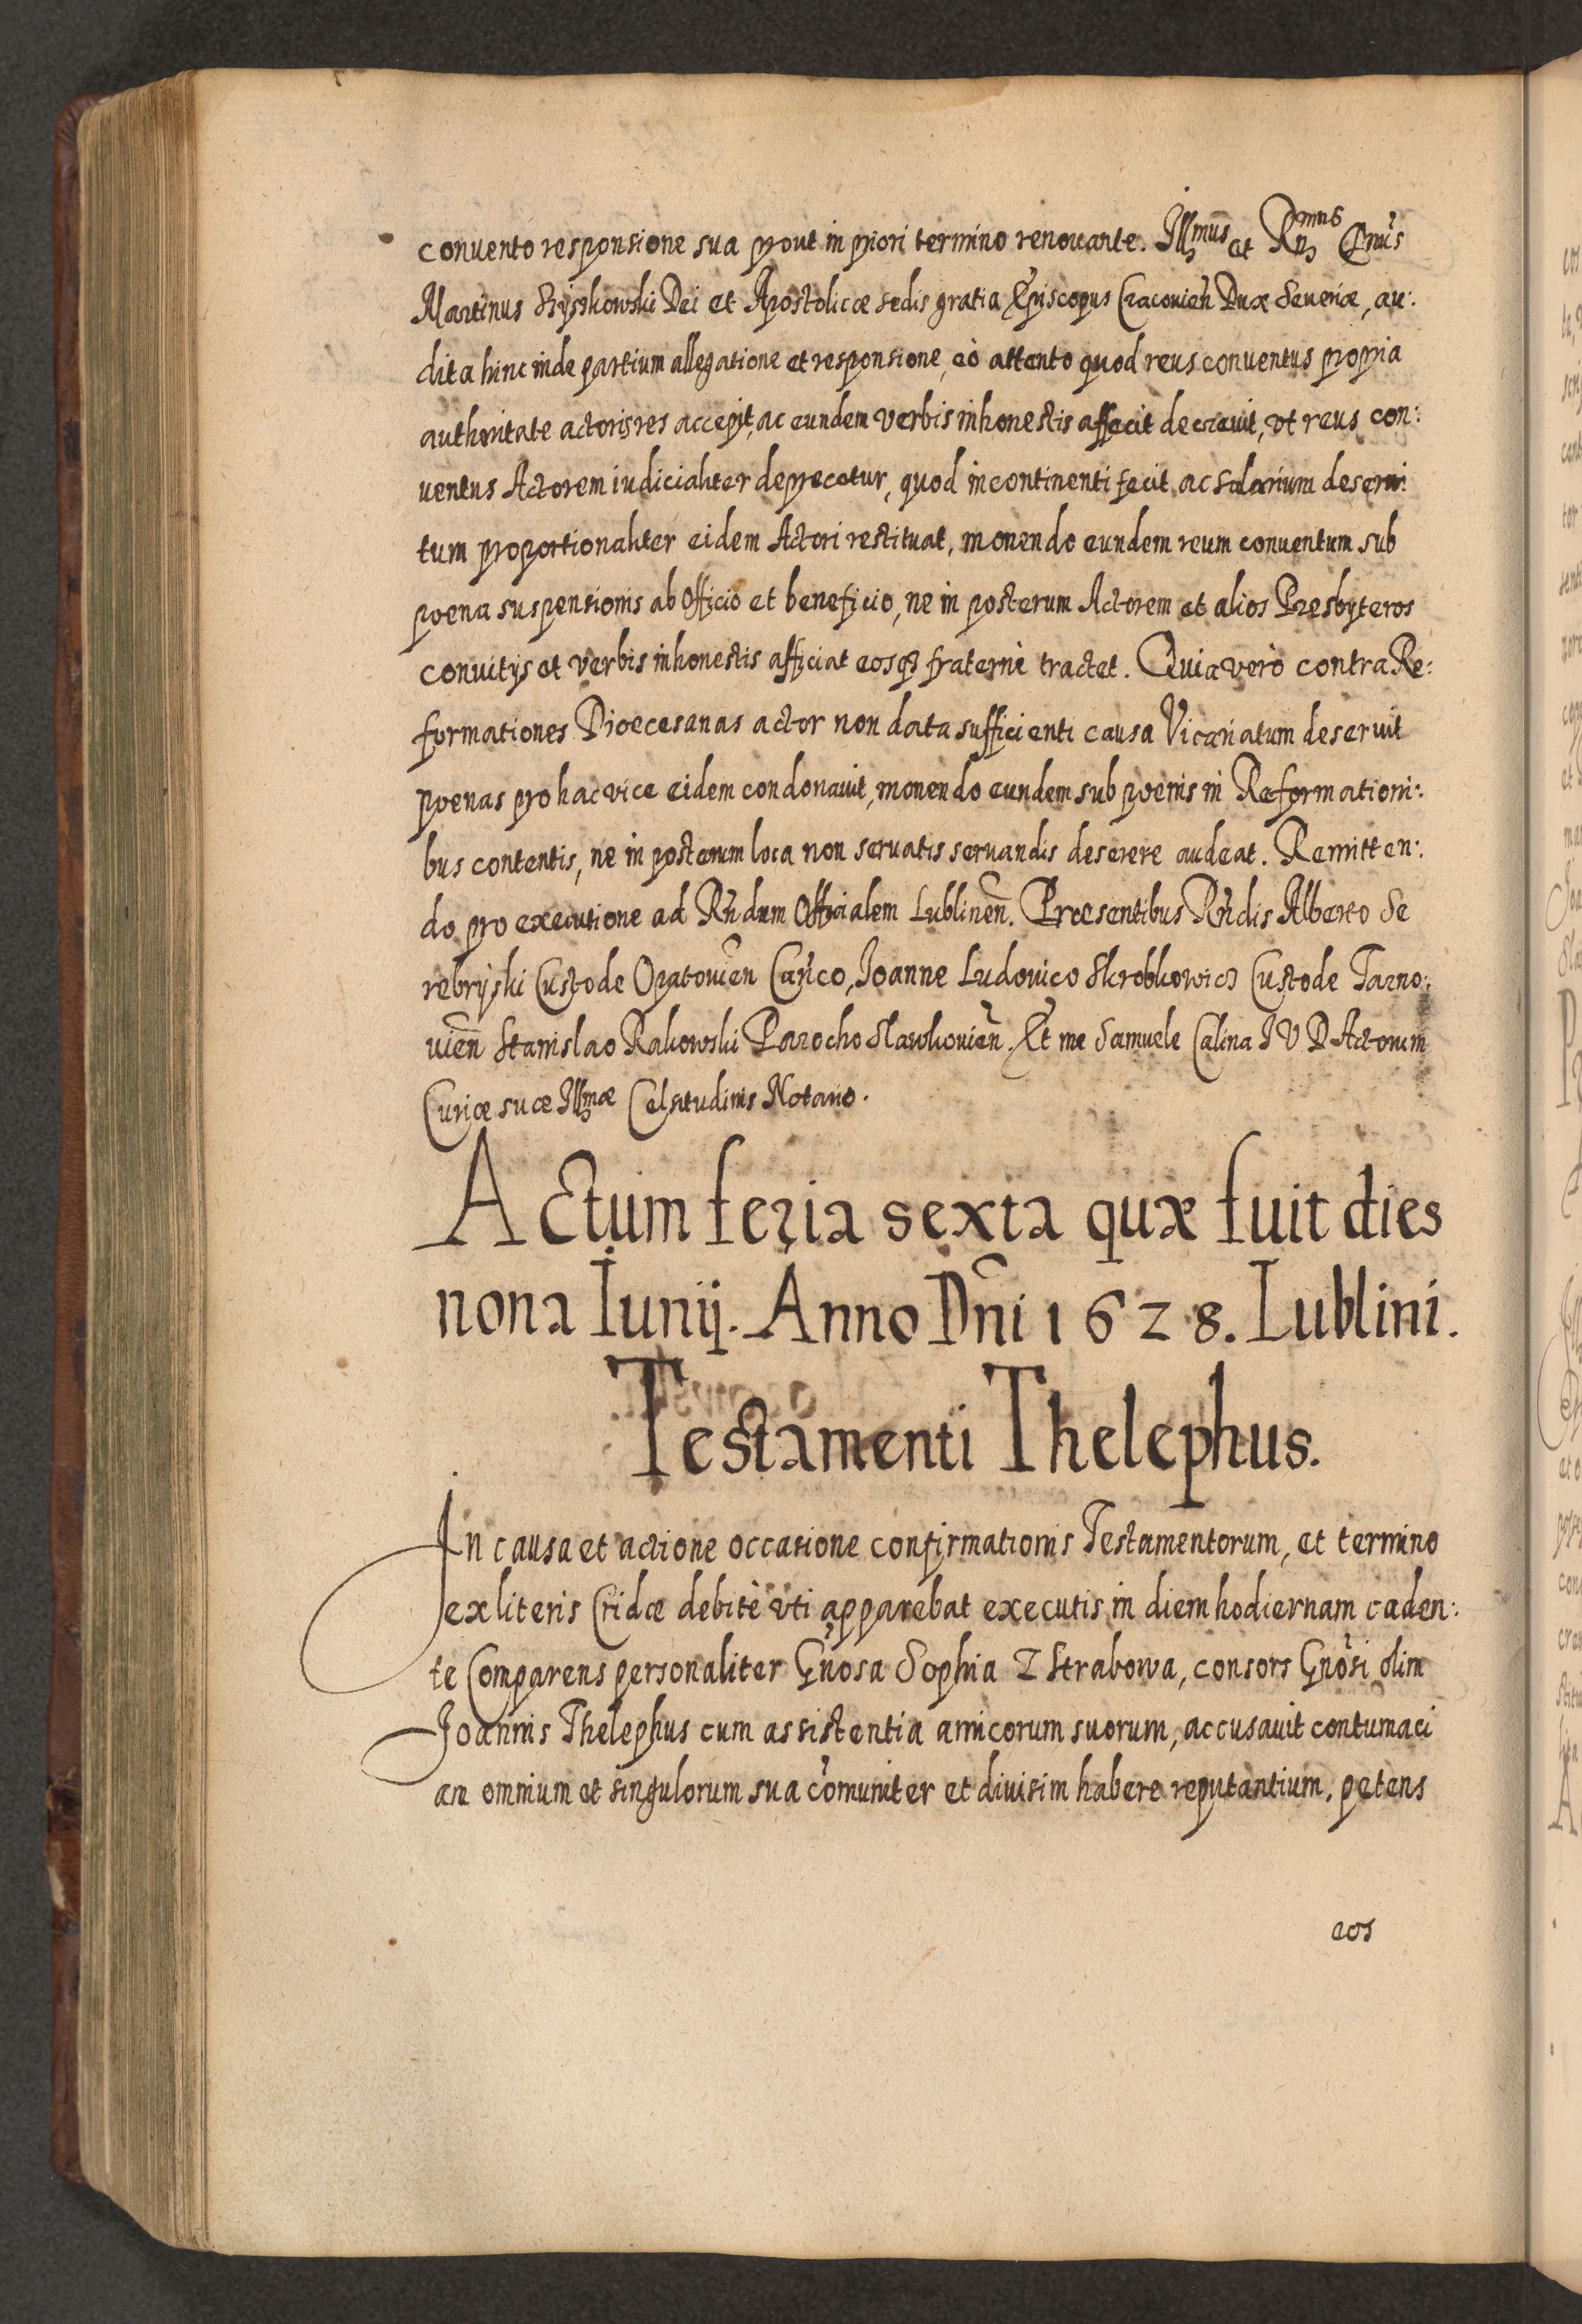 conuento responsione sua prout in priori termino renouante. Illmus et Rmus Dnus
Martinus Szyszkowski Dei et Apostolicæ sedis gratia Episcopus Cracouien Dux Seueriæ, au:
dita hinc inde partium allegatione et responsione, eò attento quod reus conuentus propria
authoritate actoris res accepit, ac eundem verbis inhonestis affecit decreuit, vt reus con:
uentus Actorem iudicialiter deprecetur, quod incontinenti fecit, ac salarium deserui
tum proportionaliter eidem Actori restituat, monendo eundem reum conuentum sub
poena suspensionis ab officio et beneficio, ne in posterum Actorem et alios Presbyteros
conuitijs et verbis inhonestis afficiat eosq3 fraternè tractet. Quia verò contra Re:
formationes Dioecesanas actor non data sufficienti causa Vicariatum deseruit
poenas pro hac vice eidem condonauit, monendo eundem sub poenis in Reformationi:
bus contentis, ne in posterum loca non seruatis seruandis deserere audeat. Remitten:
do pro executione ad Rndum Officialem Lublinen. Præsentibus Rndis Alberto Se
rebryski Custode Opatouien Canco, Joanne Ludouico Skrobkowicz Custode Tarno:
uien Stanislao Rakowski Parocho Slawkouien. Et me Samuele Calina I V D Actorum
Curiæ suæ Illmæ Celsitudinis Notario.
Actum feria sexta quæ fuit dies
nona Iunij. Anno Dni 1628. Lublini.
Testamenti Thelephus.
In causa et actione occasione confirmationis Testamentorum, et termino
ex literis Cridæ debitè vti apparebat executis in diem hodiernam caden:
te Comparens personaliter Gnosa Sophia Z Strabowa, consors Gnosi olim
Joannis Thelephus cum assistentia amicorum suorum, accusauit contumaci
am omnium et singulorum sua comuniter et diuisim habere reputantium, petens
eos